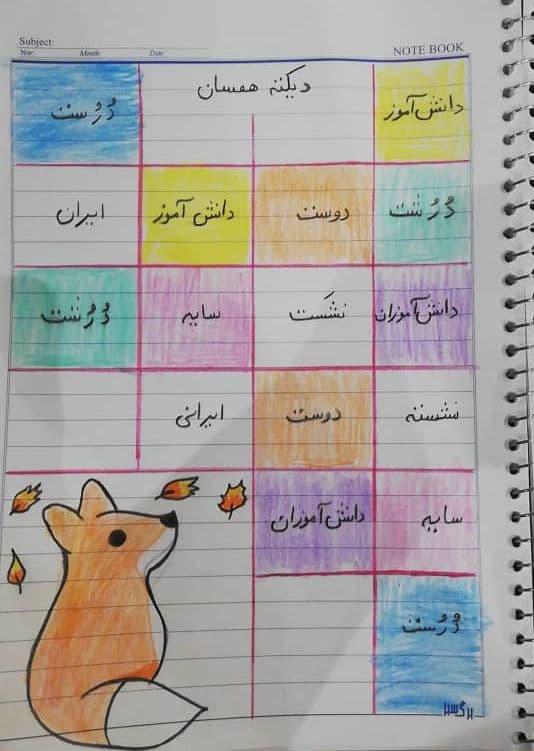 Subject:
Year: Month: Date:
NOTE BOOK
دیکته همسان
دانش آموز
دُرُست
دُرُشت
دوست
دانش آموز
ایران
دانش آموزان
سایه
دُرُشت
نشسته
دوست
ایرانی
سایه
دانش آموزان
دُرُست
برگ سبز